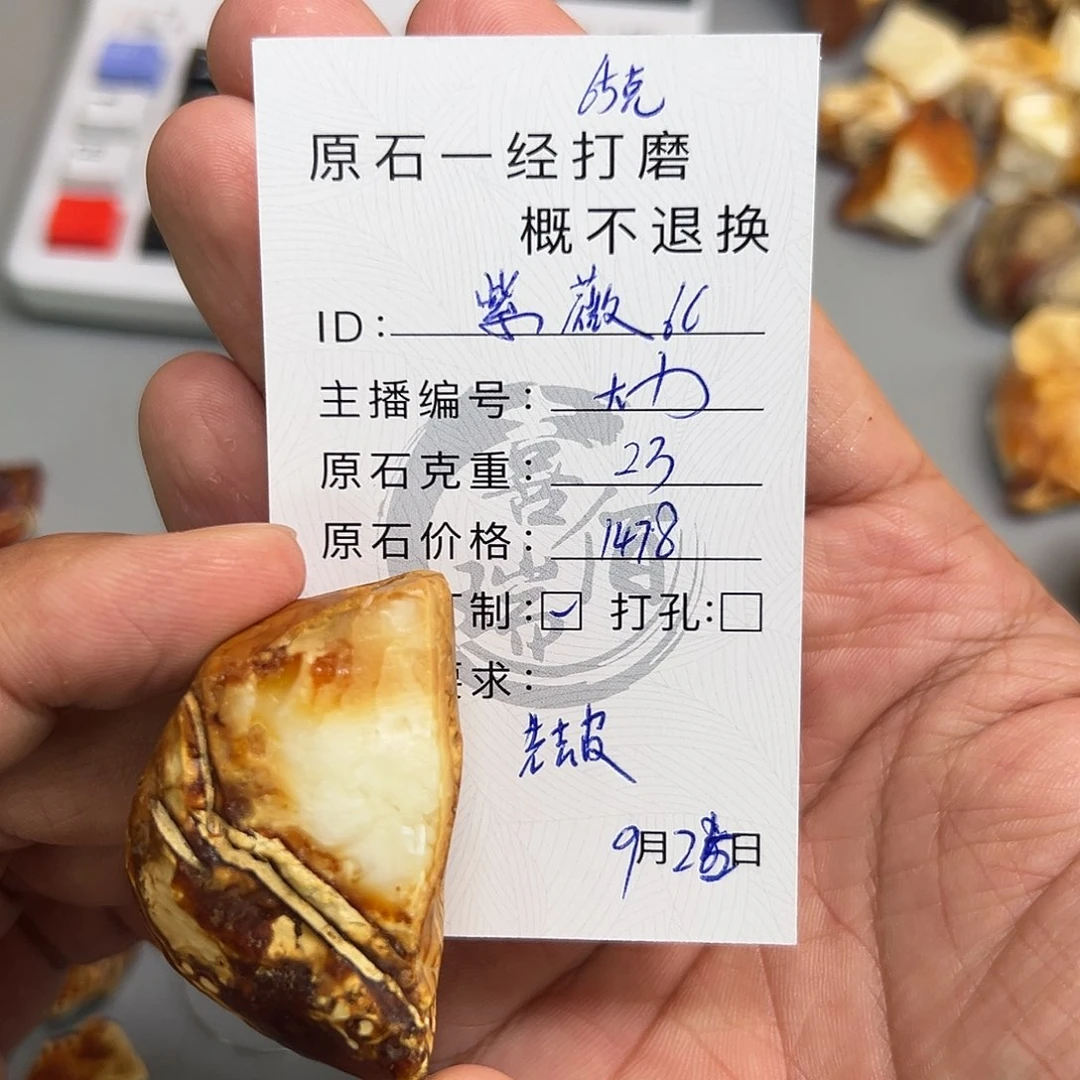 65克
原石一经打磨
概不退换
ID：紫薇66
主播编号：大力
原石克重：23
原石价格：1478
制：☑ 打孔：☐
求：
老吉皮
9月25日
喜眉
瑞